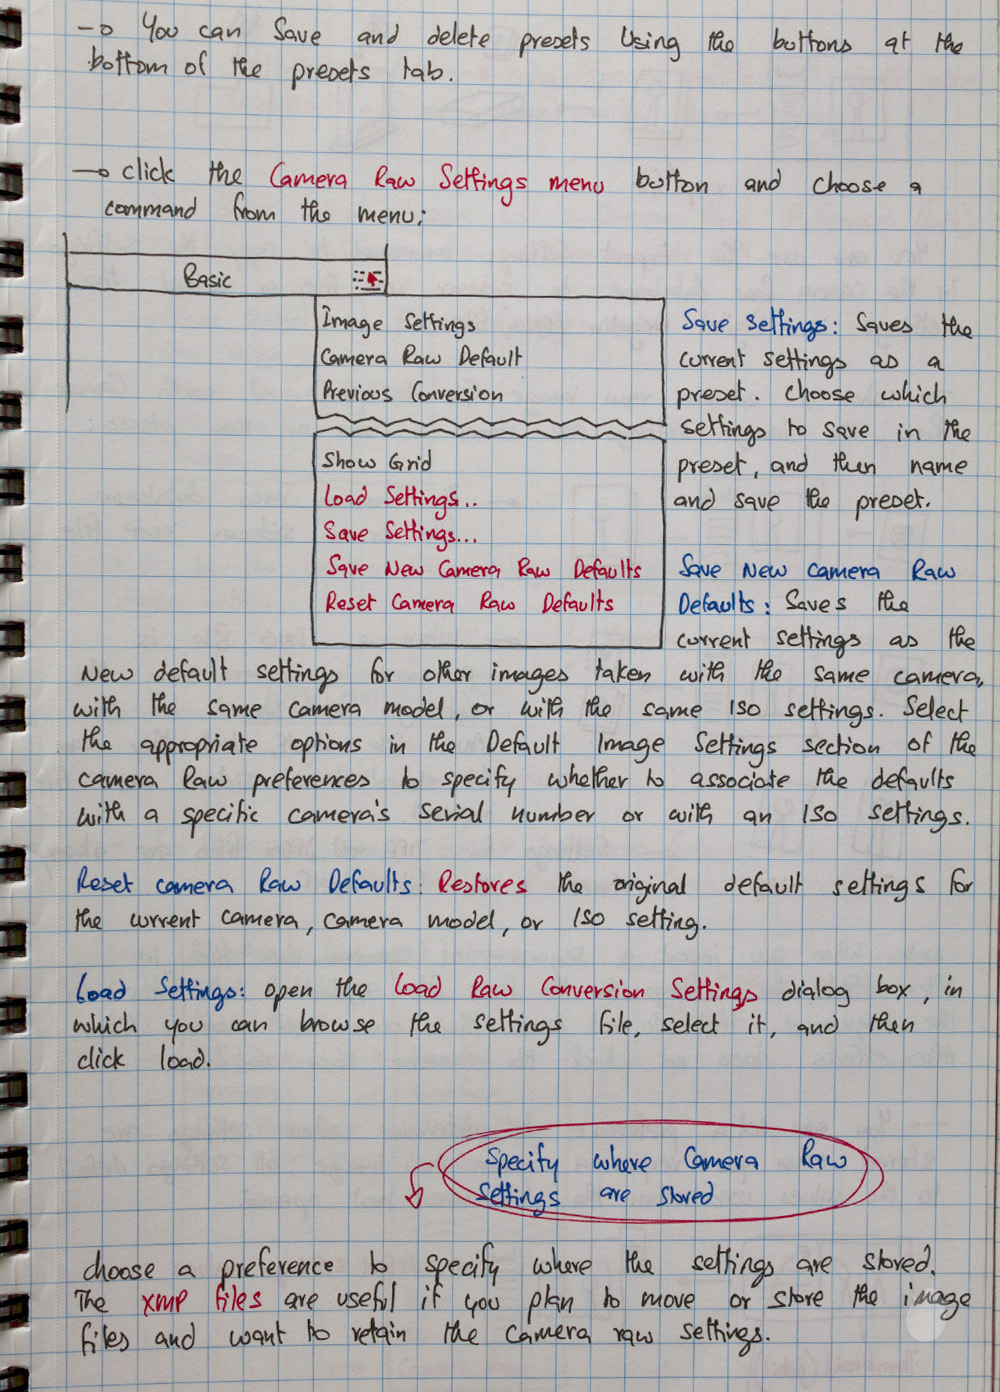 → You can Save and delete presets Using the buttons at the
bottom of the presets tab.
→ click the Camera Raw Settings menu button and choose a
command from the menu:
Basic
Image Settings
Camera Raw Default
Previous Conversion
Show Grid
Load Settings..
Save Settings...
Save New Camera Raw Defaults
Reset Camera Raw Defaults
Save Settings: Saves the
current settings as a
preset. Choose which
settings to save in the
preset, and then name
and save the preset.
Save New Camera Raw
Defaults: Saves the
current settings as the
New default settings for other images taken with the same camera,
with the same camera model, or with the same ISO settings. Select
the appropriate options in the Default Image Settings section of the
camera Raw preferences to specify whether to associate the defaults
with a specific camera's serial number or with an ISO settings.
Reset camera Raw Defaults: Restores the original default settings for
the current camera, camera model, or ISO setting.
Load Settings: open the Load Raw Conversion Settings dialog box, in
which you can browse the settings file, select it, and then
click load.
Specify where Camera Raw
Settings are stored
choose a preference to specify where the settings are stored.
The XMP files are useful if you plan to move or store the image
files and want to retain the camera raw settings.